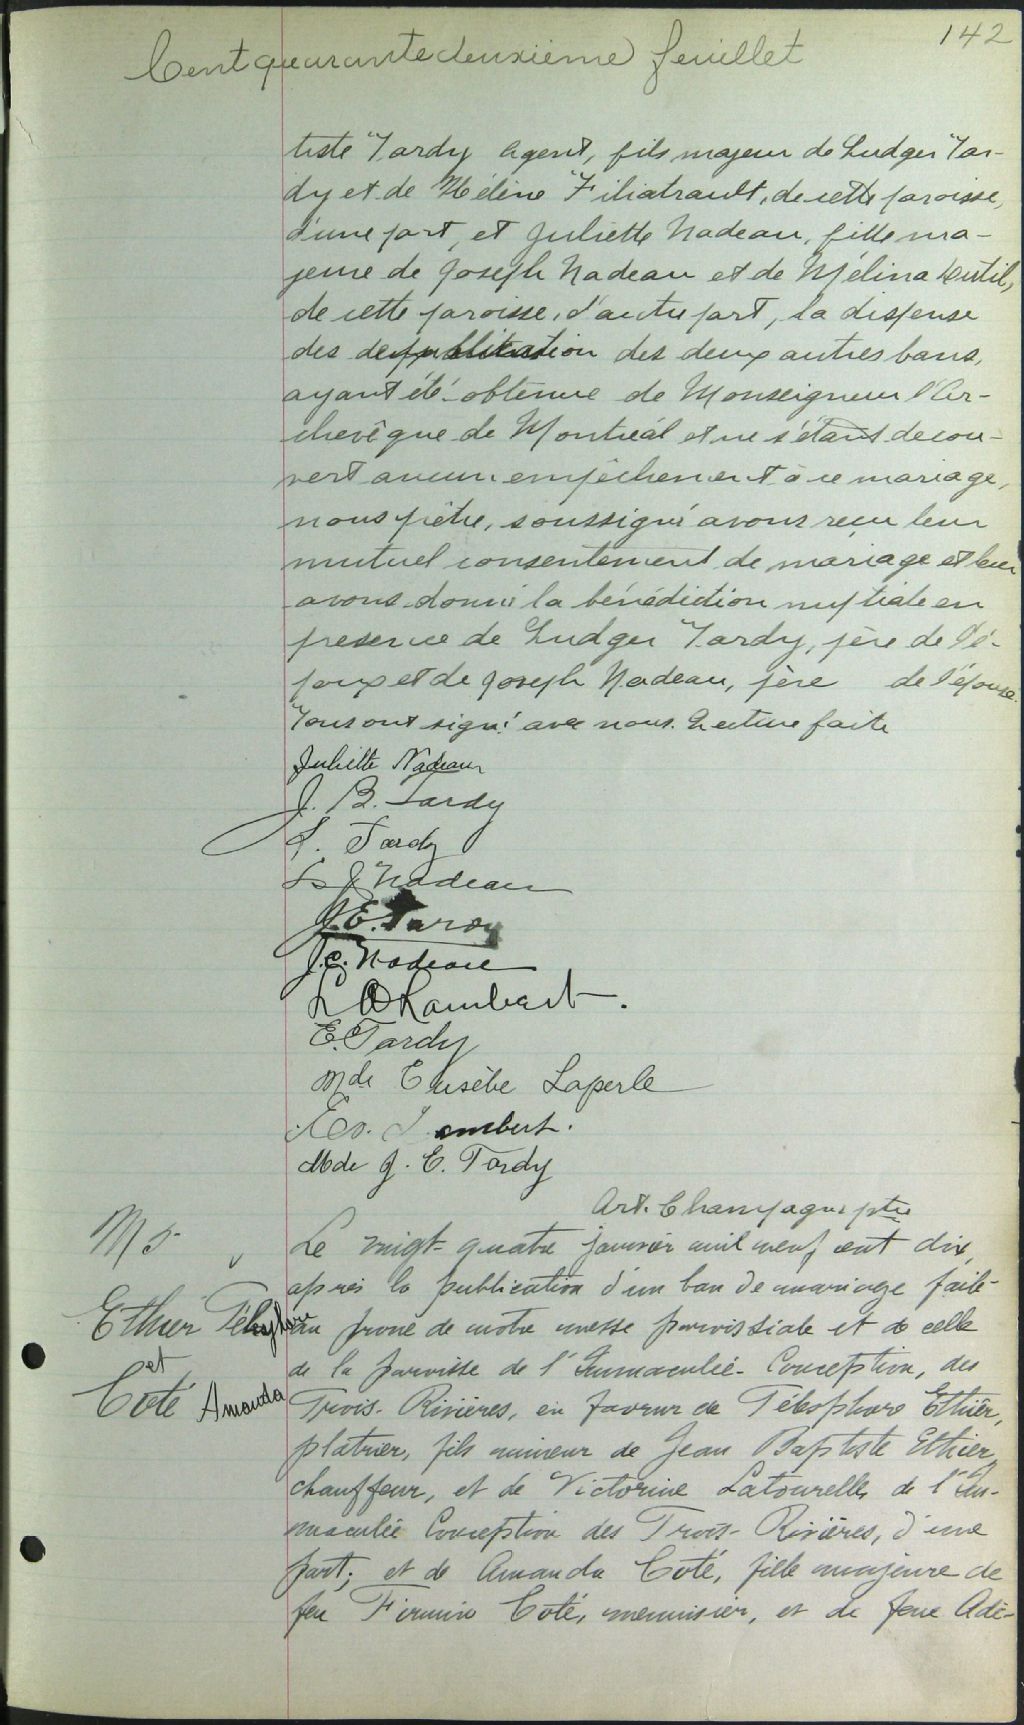 142
Cent quarante deuxième feuillet
tiste Tardy agent, fils majeur de Ludger Tar-
dy et de Méline Filiatrault, de cette paroisse,
d'une part, et Juliette Nadeau, fille ma-
jeure de Joseph Nadeau et de Mélina Dutil,
de cette paroisse, d'autre part, la dispense
des de publication des deux autres bans,
ayant été obtenue de Monseigneur l'Ar-
chevêque de Montréal et ne s'étant décou-
vert aucun empêchement à ce mariage,
nous prêtre, soussigné avons reçu leur
mutuel consentement de mariage et leur
avons donné la bénédiction nuptiale en
présence de Ludger Tardy, père de l'é-
poux et de Joseph Nadeau, père de l'épouse.
Tous ont signé avec nous. Lecture faite
Juliette Nadeau
J. B. Tardy
L. Tardy
Ls J Nadeau
J. E. Tardy
J. C. Nadeau
L O Lambert.
E. Tardy
Mde Eusèbe Laperle
Lambert.
Mde J. E. Tardy
Art. Champagne ptre
M 5-
Ethier Télesphore
et
Coté Amanda
Le vingt-quatre janvier mil neuf cent dix,
après la publication d'un ban de mariage faite
au prone de notre messe paroissiale et de celle
de la paroisse de l'Immaculée-Conception, des
Trois-Rivières, en faveur de Télesphore Ethier,
platrier, fils mineur de Jean Baptiste Ethier,
chauffeur, et de Victorine Latourelle, de l'Im-
maculée Conception des Trois-Rivières, d'une
part; et de Amanda Coté, fille majeure de
feu Firmin Coté, menuisier, et de feue Adè-